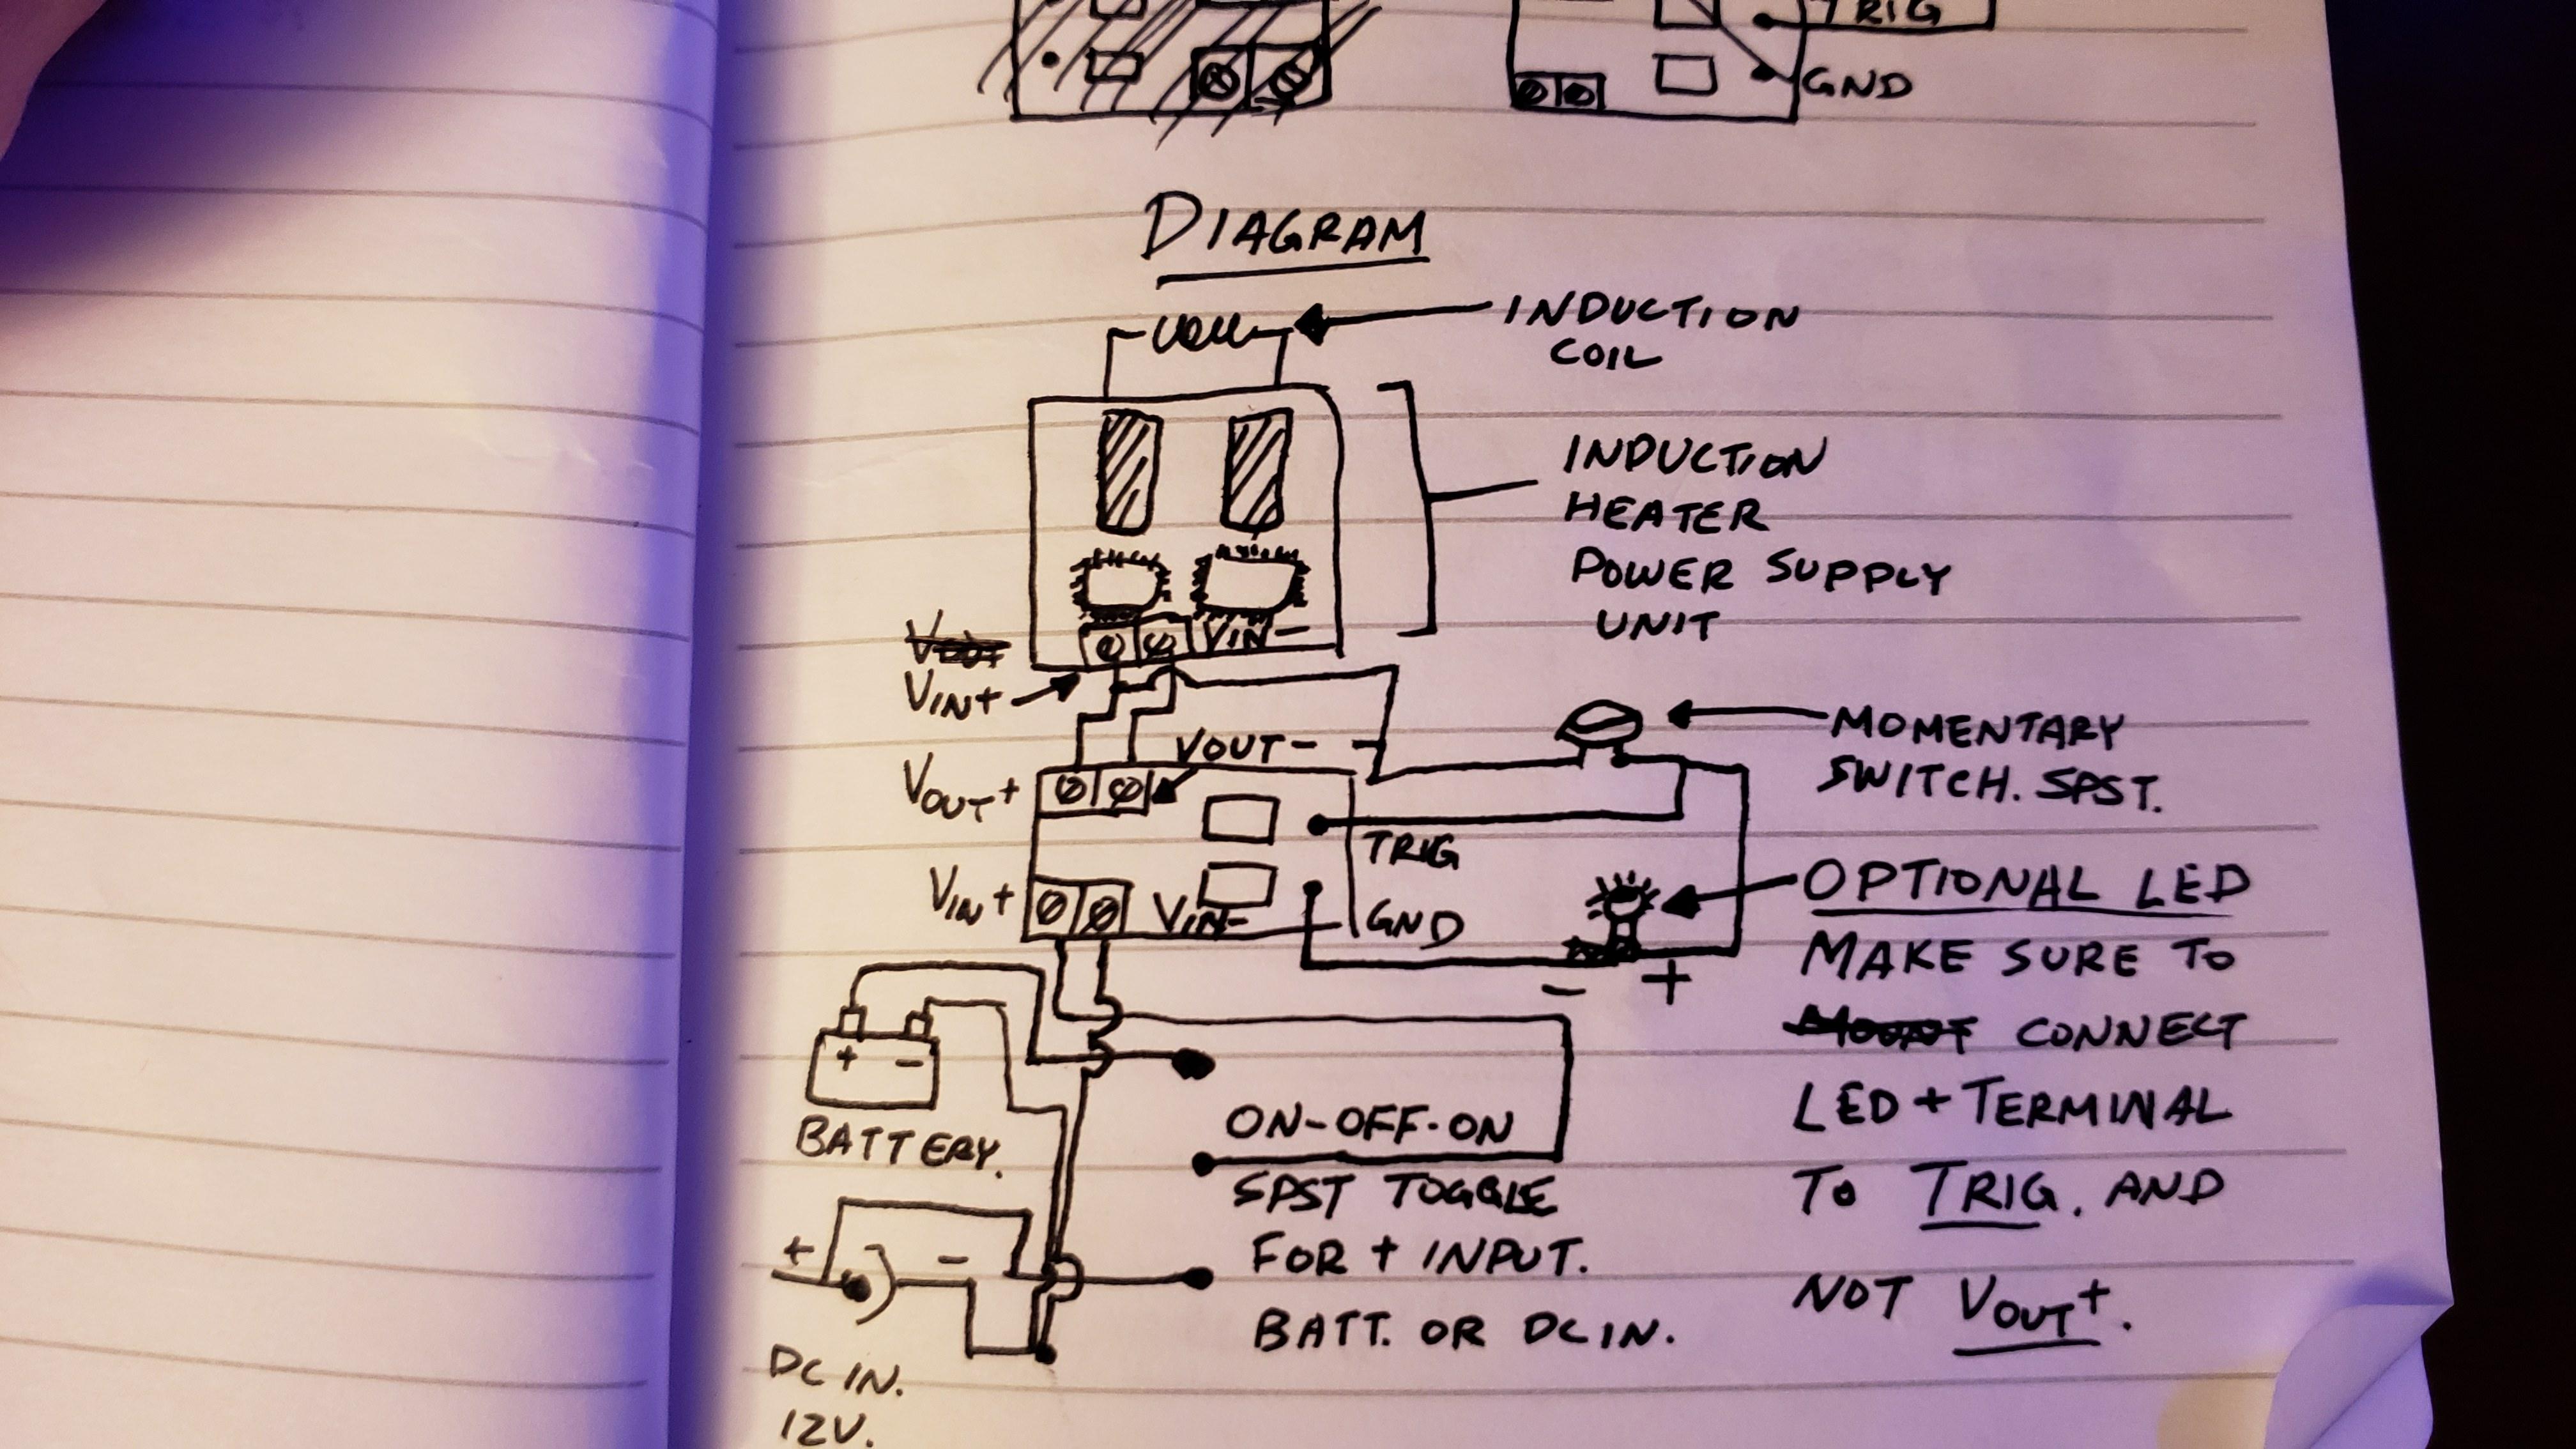 TRIG
GND
DIAGRAM
INDUCTION
COIL
INDUCTION
HEATER
POWER SUPPLY
UNIT
VIN-
VIN+
VOUT-
VOUT+
MOMENTARY
SWITCH. SPST.
TRIG
VIN+
VIN-
GND
OPTIONAL LED
MAKE SURE TO
CONNECT
LED + TERMINAL
TO TRIG. AND
NOT VOUT+.
- +
+ -
BATTERY.
ON-OFF-ON
SPST TOGGLE
FOR + INPUT.
BATT. OR DC IN.
+ -
DC IN.
12V.